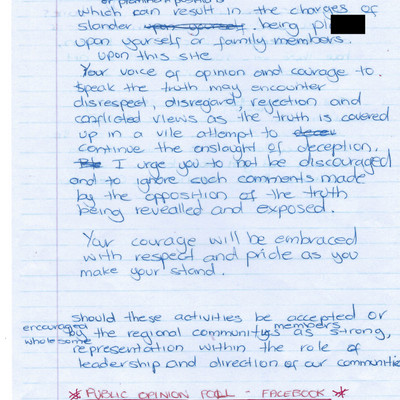 which can result in the charges of
slander upon yourself being pl
upon yourself or family members.
upon this site
Your voice of opinion and courage to.
speak the truth may encounter
disrespect, disregard, rejection and
conflicted views as the truth is covered
up in a vile attempt to decev
continue the onslaught of deception.
I urge you to not be discouraged
and to ignore such comments made
by the opposition of the truth
being revealled and exposed.
Your courage will be embraced
with respect and pride as you
make your stand.
should these activities be accepted or
encouraged by the regional community members as strong,
wholesome representation within the role of
leadership and direction of our communitie
* PUBLIC OPINION POLL - FACEBOOK *